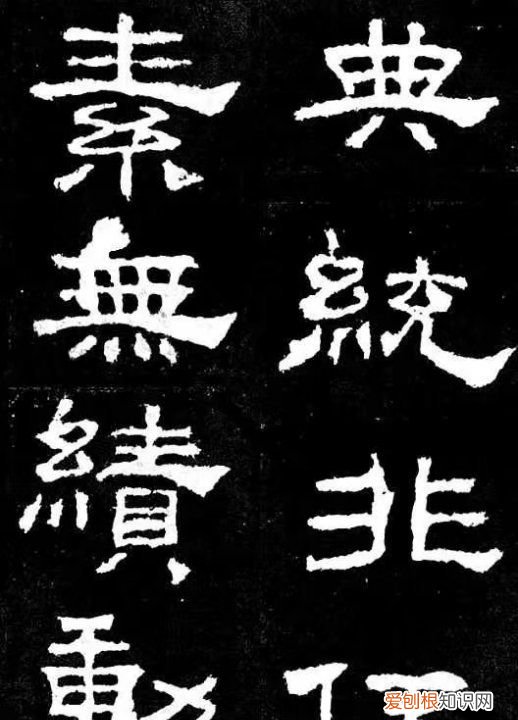 典統非
素無績
爱刨根知识网